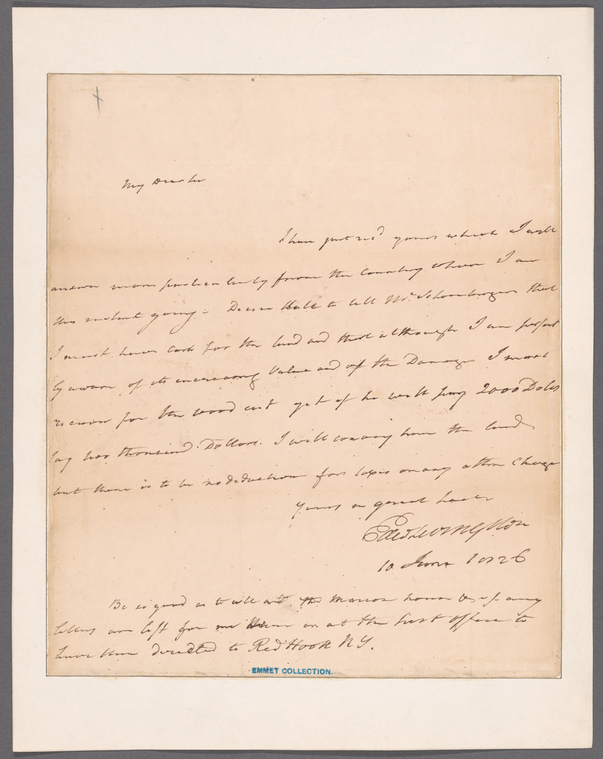 My Dear Sir
I have just recd yours which I will
answer more particularly from the Country where I am
this instant going - Desire Hall to tell Mr. that
I must have Cash for the land and that although I am perfect
ly aware of its increasing Value and of the Damage I must
recover for the wood cut yet if he will pay 2000 Dolrs
say two thousand Dollars. I will convey him the land
but there is to be no deduction for taxes or any other Charge
Yours in great haste
Edwd Livingston
10 June 1826
Be so good as to call at the Mansion house & if any
letters are left for me or at the Post Office to
have them directed to Red Hook NY.
EMMET COLLECTION.